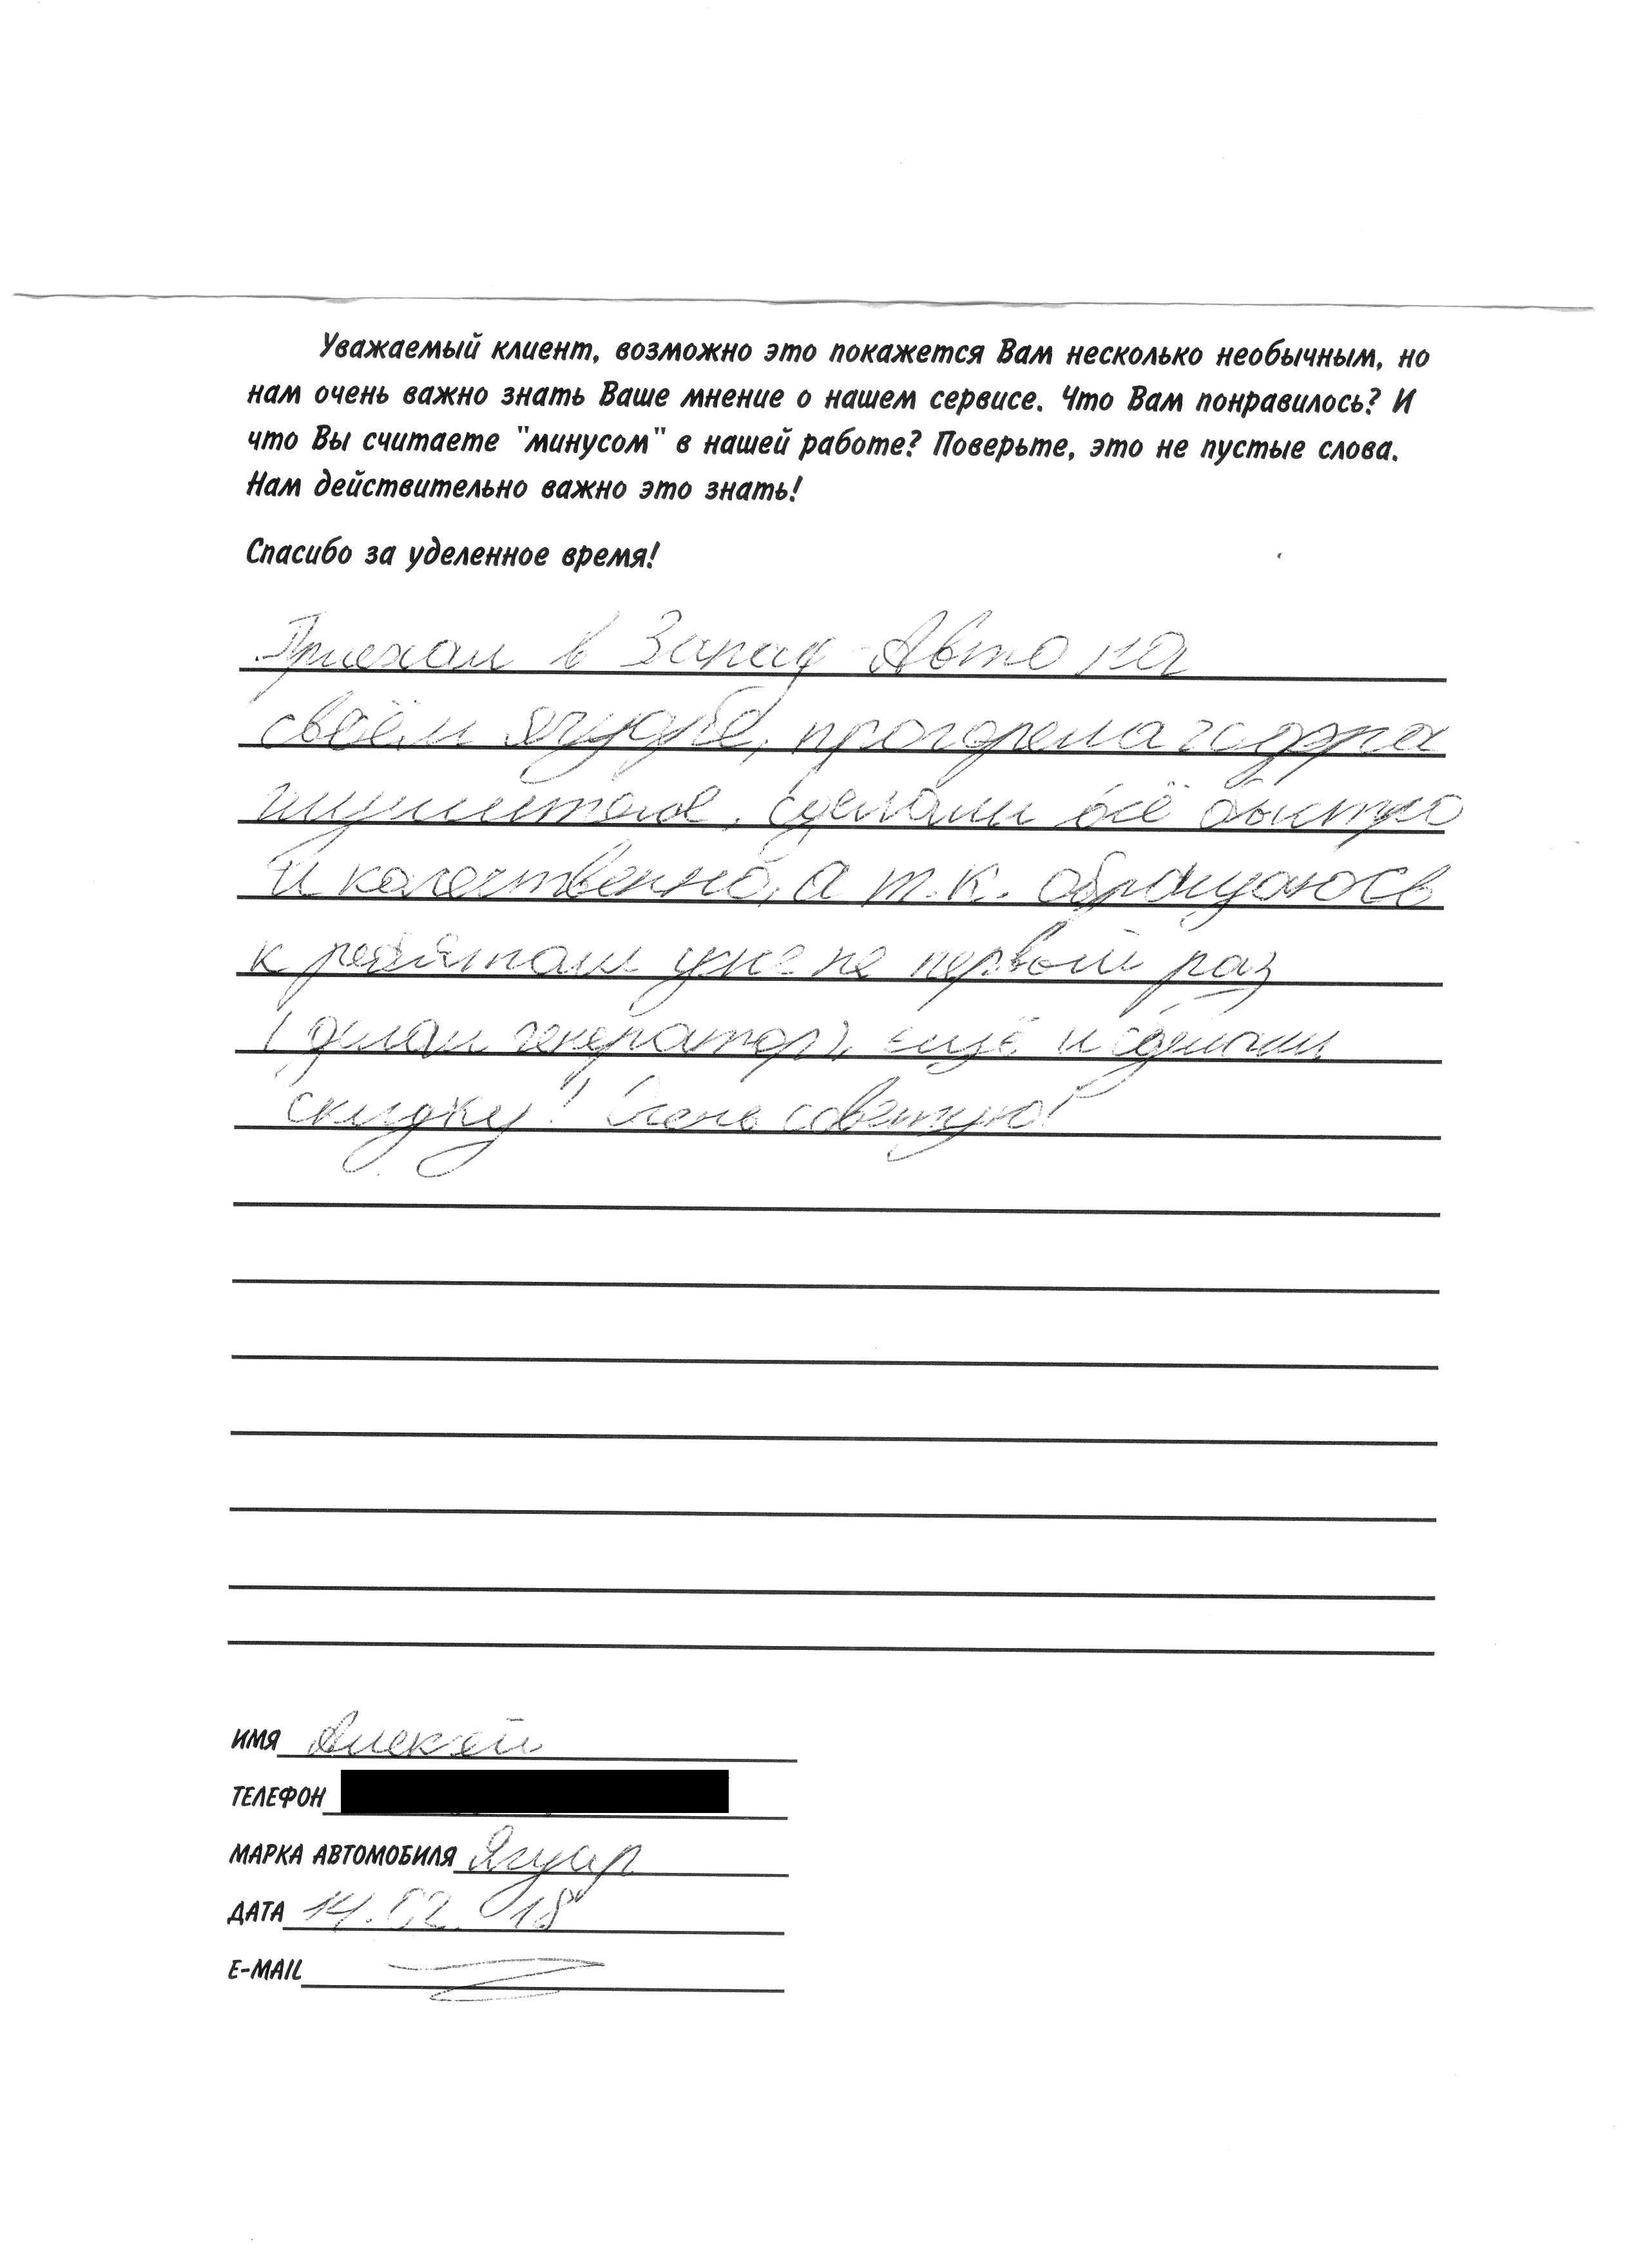 Уважаемый клиент, возможно это покажется Вам несколько необычным, но
нам очень важно знать Ваше мнение о нашем сервисе. Что Вам понравилось? И
что Вы считаете "минусом" в нашей работе? Поверьте, это не пустые слова.
Нам действительно важно это знать!
Спасибо за уделенное время!
Приехал в Запад-Авто на
своём ягуаре, прогорела гофра
глушителя, сделали всё быстро
и качественно, а т.к. обращаюсь
к ребятам уже не первый раз
(делал генератор), ещё и сделали
скидку! Очень советую!
ИМЯ Алексей
ТЕЛЕФОН
МАРКА АВТОМОБИЛЯ Ягуар
ДАТА 14.02.18
E-MAIL